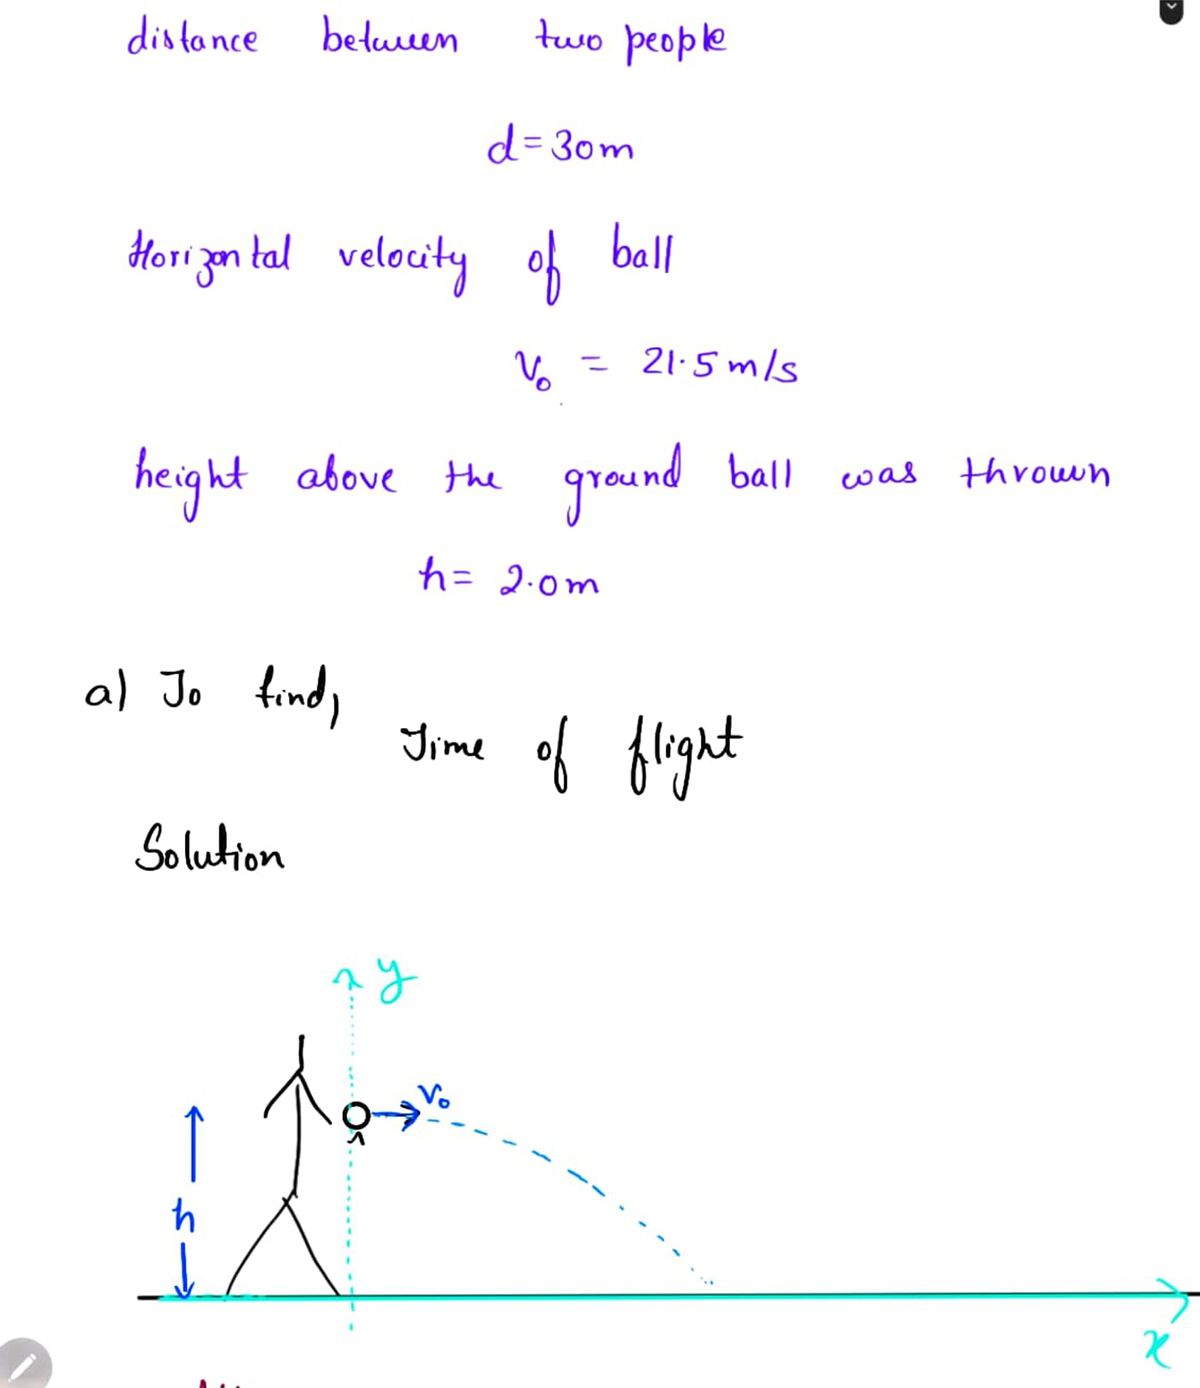 distance between two people
d = 30m
Horizontal velocity of ball
V₀ = 21.5 m/s
height above the ground ball was thrown
h = 2.0m
a) To find,
Time of flight
Solution
y
V₀
h
x